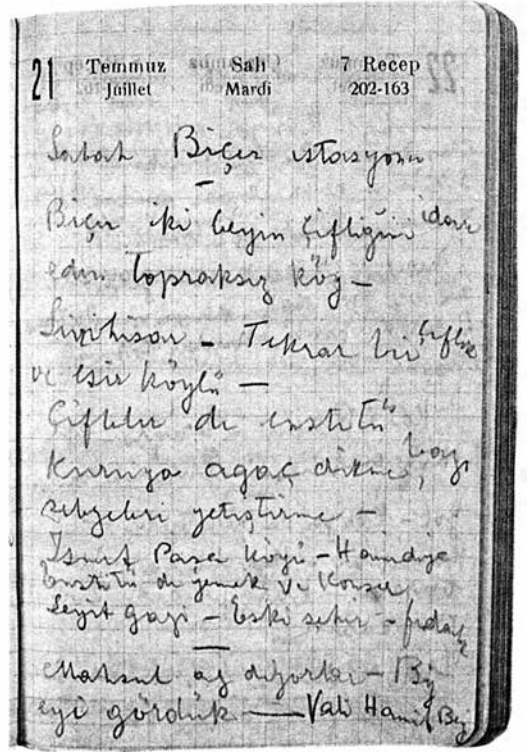 21 Temmuz Salı 7 Recep
Juillet Mardi 202-163
Sabah Biçer istasyonu
—
Biçer iki beyin çifliğini idare
eden topraksız köy —
Sivrihisar - Tekrar bir çiflik
ve esir köylü —
Çifteler de enstitü
Kuruya ağaç dikme, bazı
sebzeleri yetiştirme —
İsmet Paşa köyü - Hamidiye
Enstitü de yemek ve Konser
Seyit gazi - Eski şehir - fidanlık
—
Mahsul az diyorlar - Biz
eyi gördük — Vali Hamit Bey